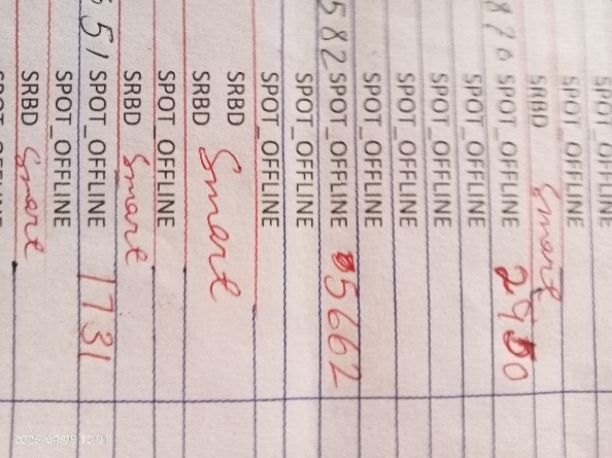 SPOT_OFFLINE
SPOT_OFFLINE
SRBD Smart
870 SPOT_OFFLINE
SPOT_OFFLINE
SPOT_OFFLINE
SPOT_OFFLINE
SPOT_OFFLINE
582 SPOT_OFFLINE 5662
SPOT_OFFLINE
SPOT_OFFLINE
SRBD Smart
SRBD
SPOT_OFFLINE
SRBD Smart
51 SPOT_OFFLINE 1731
SPOT_OFFLINE
SRBD Smart